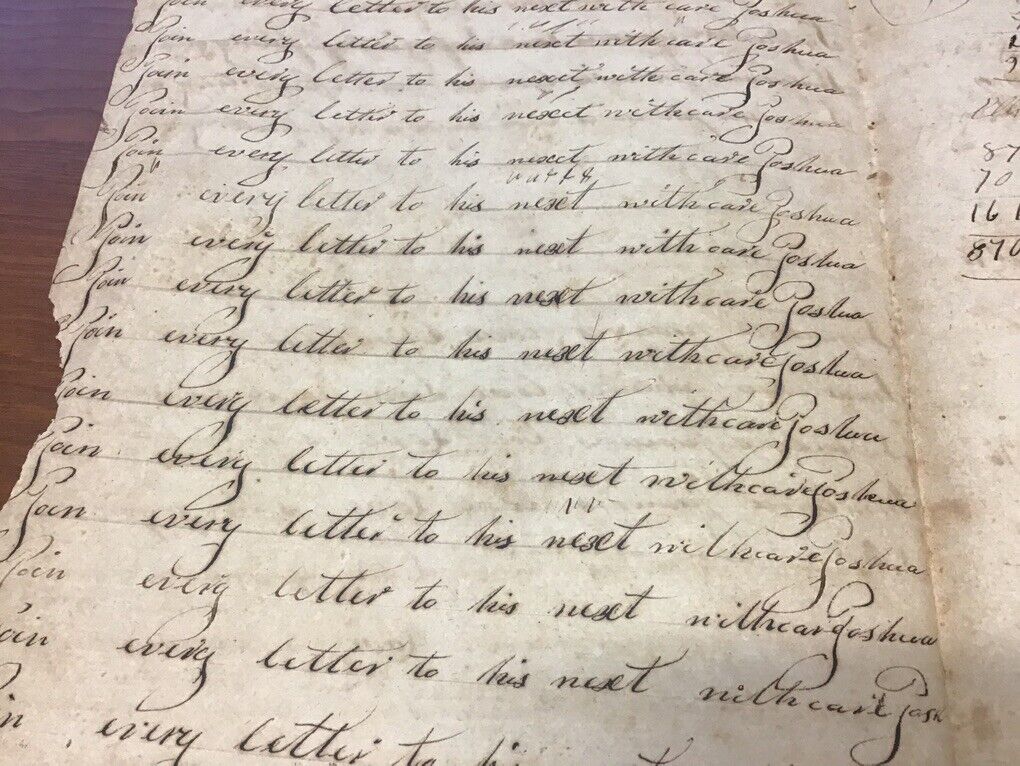 Join every letter to his next with care Joshua
Join every letter to his next with care Joshua
Join every letter to his nexct with care Joshua
Join every letter to his nexct with care Joshua
Join every letter to his nexct with care Joshua
Join every letter to his next with care Joshua
Join every letter to his next with care Joshua
Join every letter to his next with care Joshua
Join every letter to his next with care Joshua
Join every letter to his next with care Joshua
Join every letter to his next with care Joshua
Join every letter to his next with care Joshua
Join every letter to his next with care Joshua
oin every letter to his next with care Josh
in every letter to hi
87
70
161
870